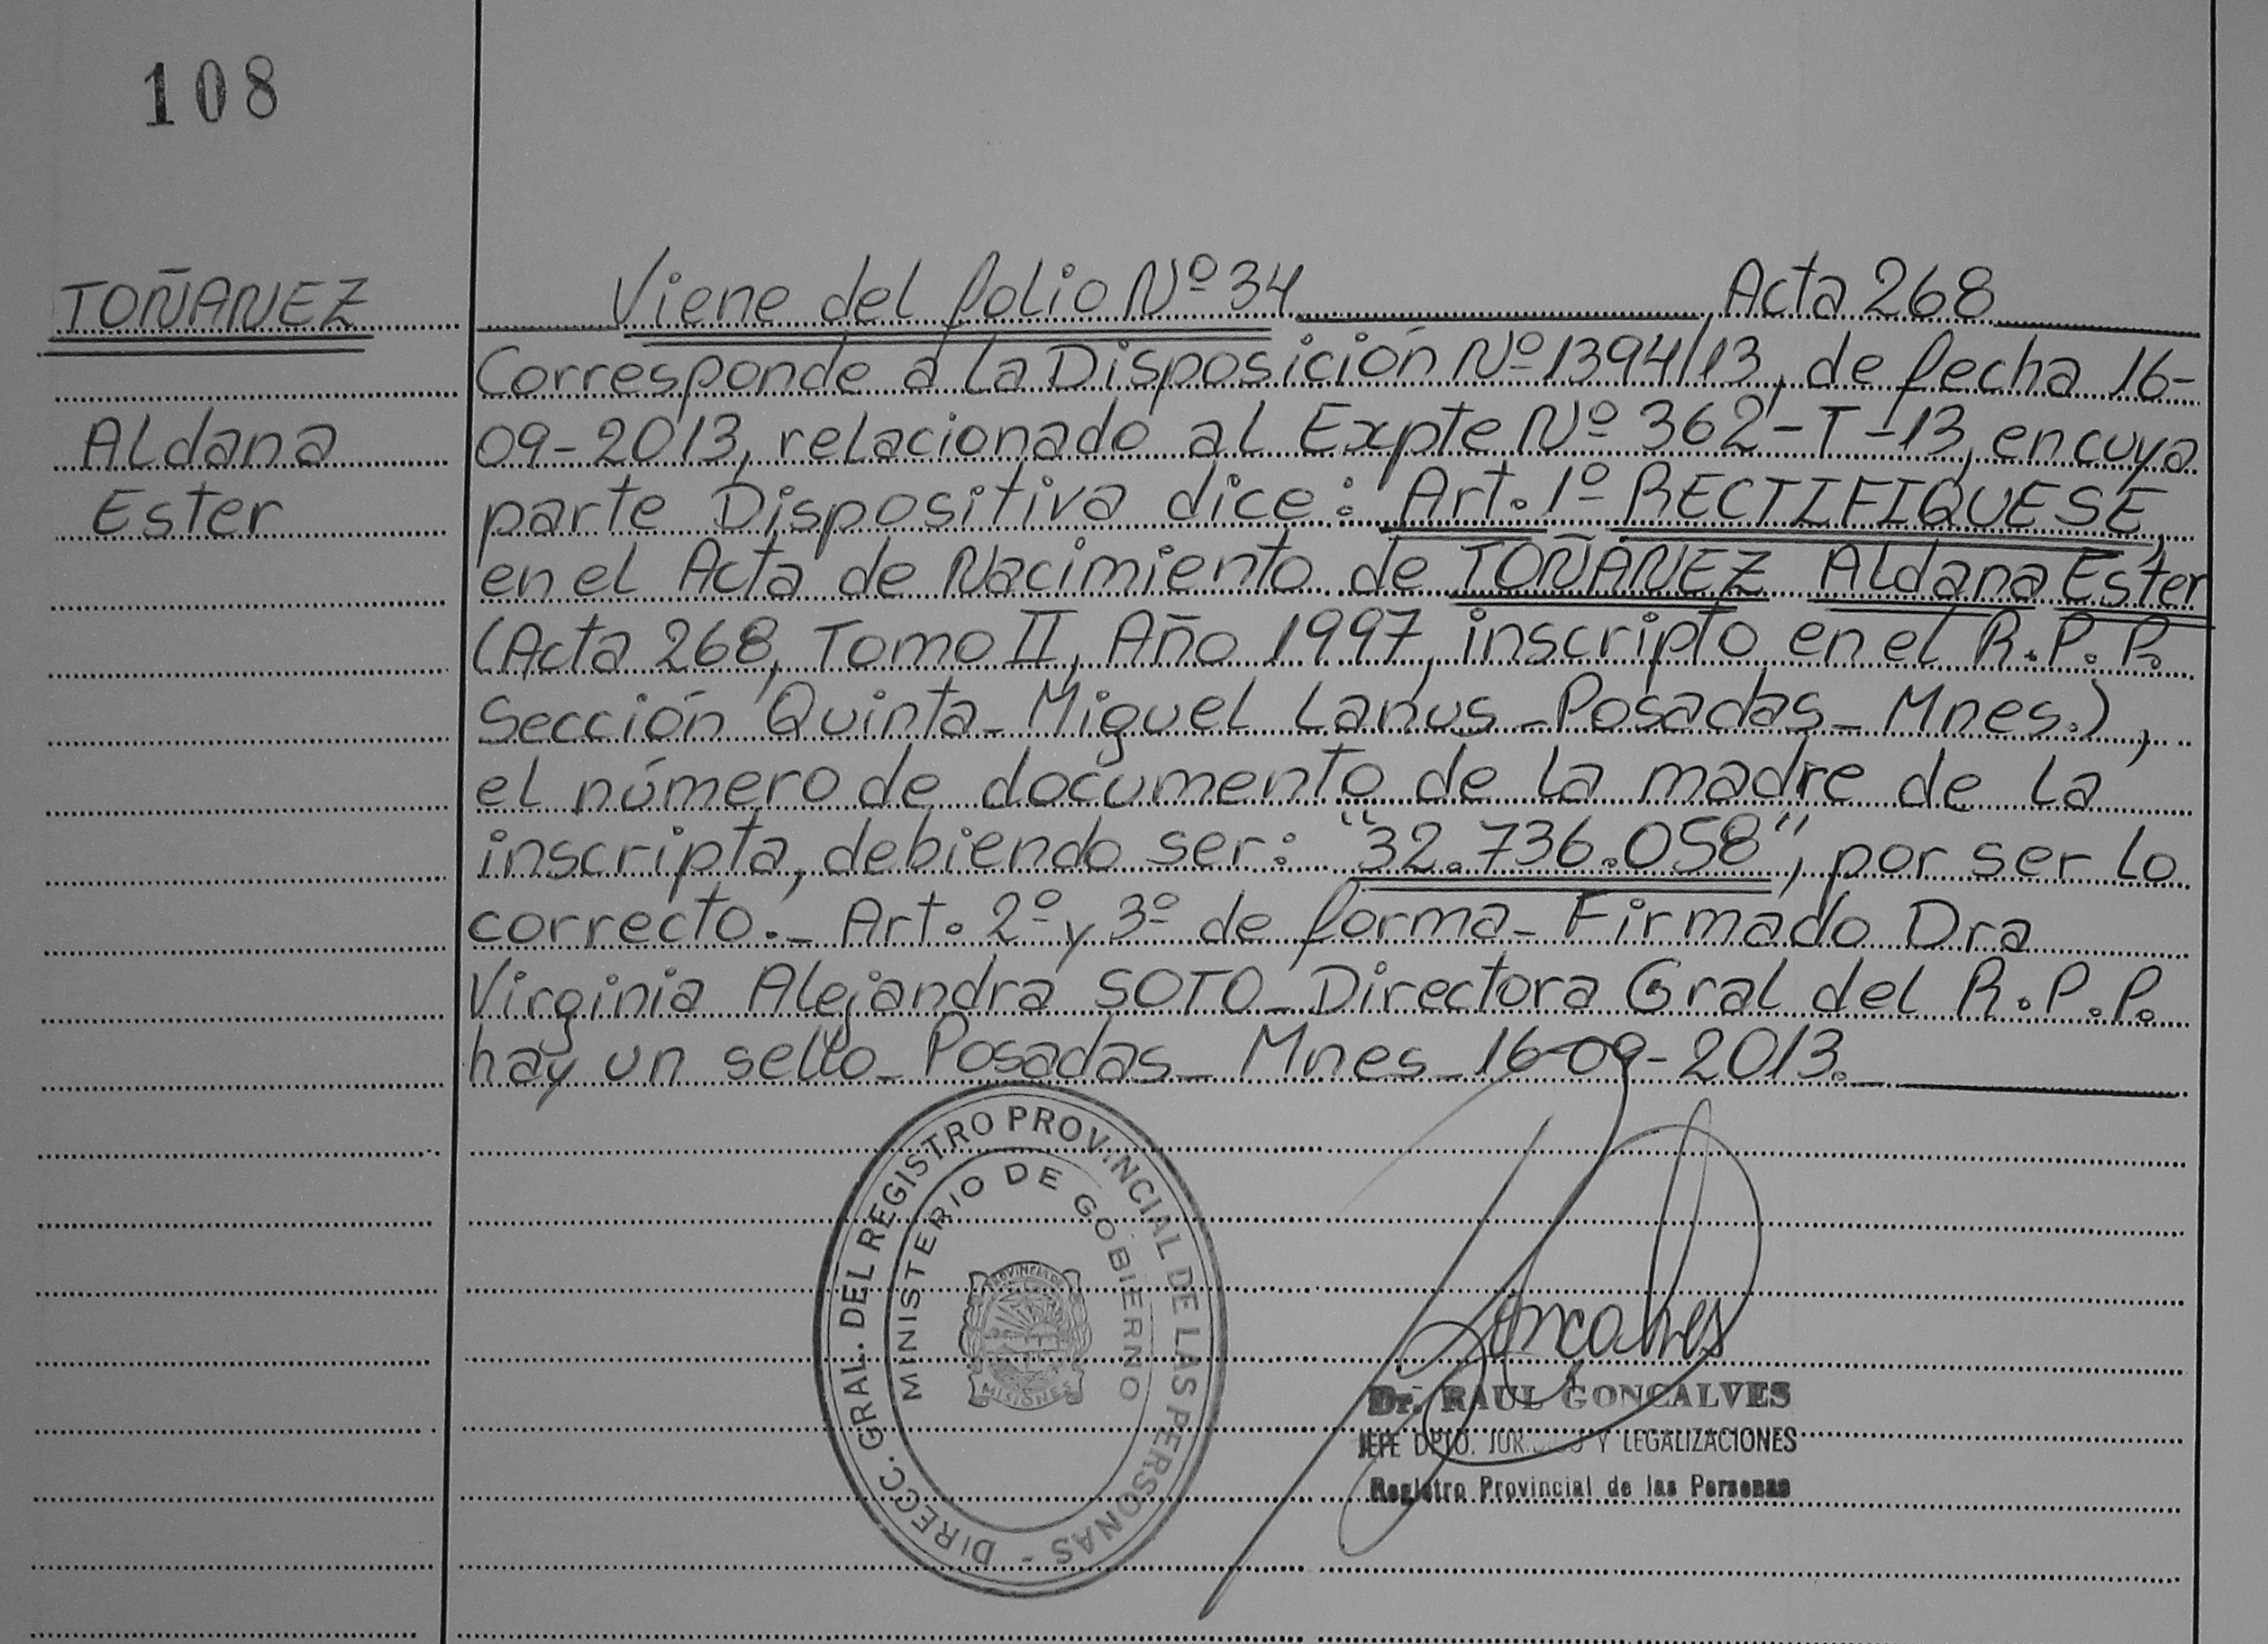 108
TOÑANEZ
Aldana
Ester
Viene del folio Nº 34 Acta 268
Corresponde a la Disposición Nº 1394/13, de fecha 16-
09-2013, relacionado al Expte Nº 362-T-13, en cuya
parte Dispositiva dice: Art. 1º RECTIFIQUESE,
en el Acta de Nacimiento de TOÑANEZ Aldana Ester
(Acta 268, Tomo II, Año 1997, inscripto en el R.P.P.
Sección Quinta- Miguel Lanus - Posadas - Mnes.),
el número de documento de la madre de la
inscripta, debiendo ser: "32.736.058", por ser lo
correcto.- Art. 2º y 3º de forma - Firmado Dra
Virginia Alejandra SOTO - Directora Gral del R.P.P.
hay un sello - Posadas - Mnes - 16-09-2013.-
DIRECC. GRAL. DEL REGISTRO PROVINCIAL DE LAS PERSONAS -
MINISTERIO DE GOBIERNO
PROVINCIA DE
MISIONES
Dr. RAUL GONCALVES
JEFE DPTO. Y LEGALIZACIONES
Registro Provincial de las Personas